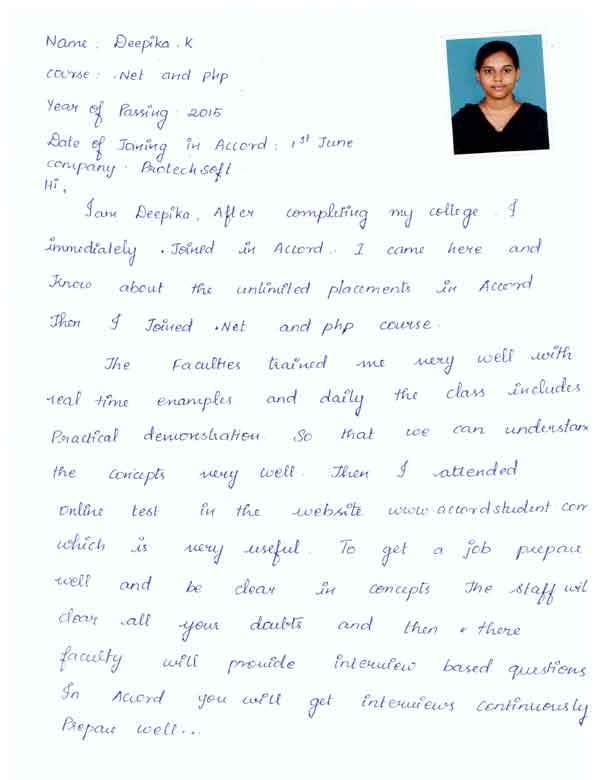 Name : Deepika . K
course : .Net and php
Year of Passing : 2015
Date of Joning in Accord : 1st June
company : Protechsoft
Hi,
I am Deepika, After completing my college . I
immediately . Joined in Accord . I came here and
Know about the unlimited placements in Accord
Then I Joined .Net and php course .
The Faculties trained me very well with
real time enamples and daily the class includes
Practical demonstration. So that we can understan
the concepts very well . Then I attended
online test in the website www.accordstudent.com
which is very useful . To get a job prepare
well and be clear in concepts The staff wil
clear all your doubts and then . there
faculty will provide interview based questions
In Accord you will get interviews continuously
Prepare well...